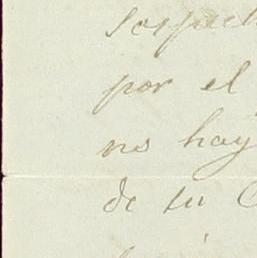 sospech
por el
no hay
de su C